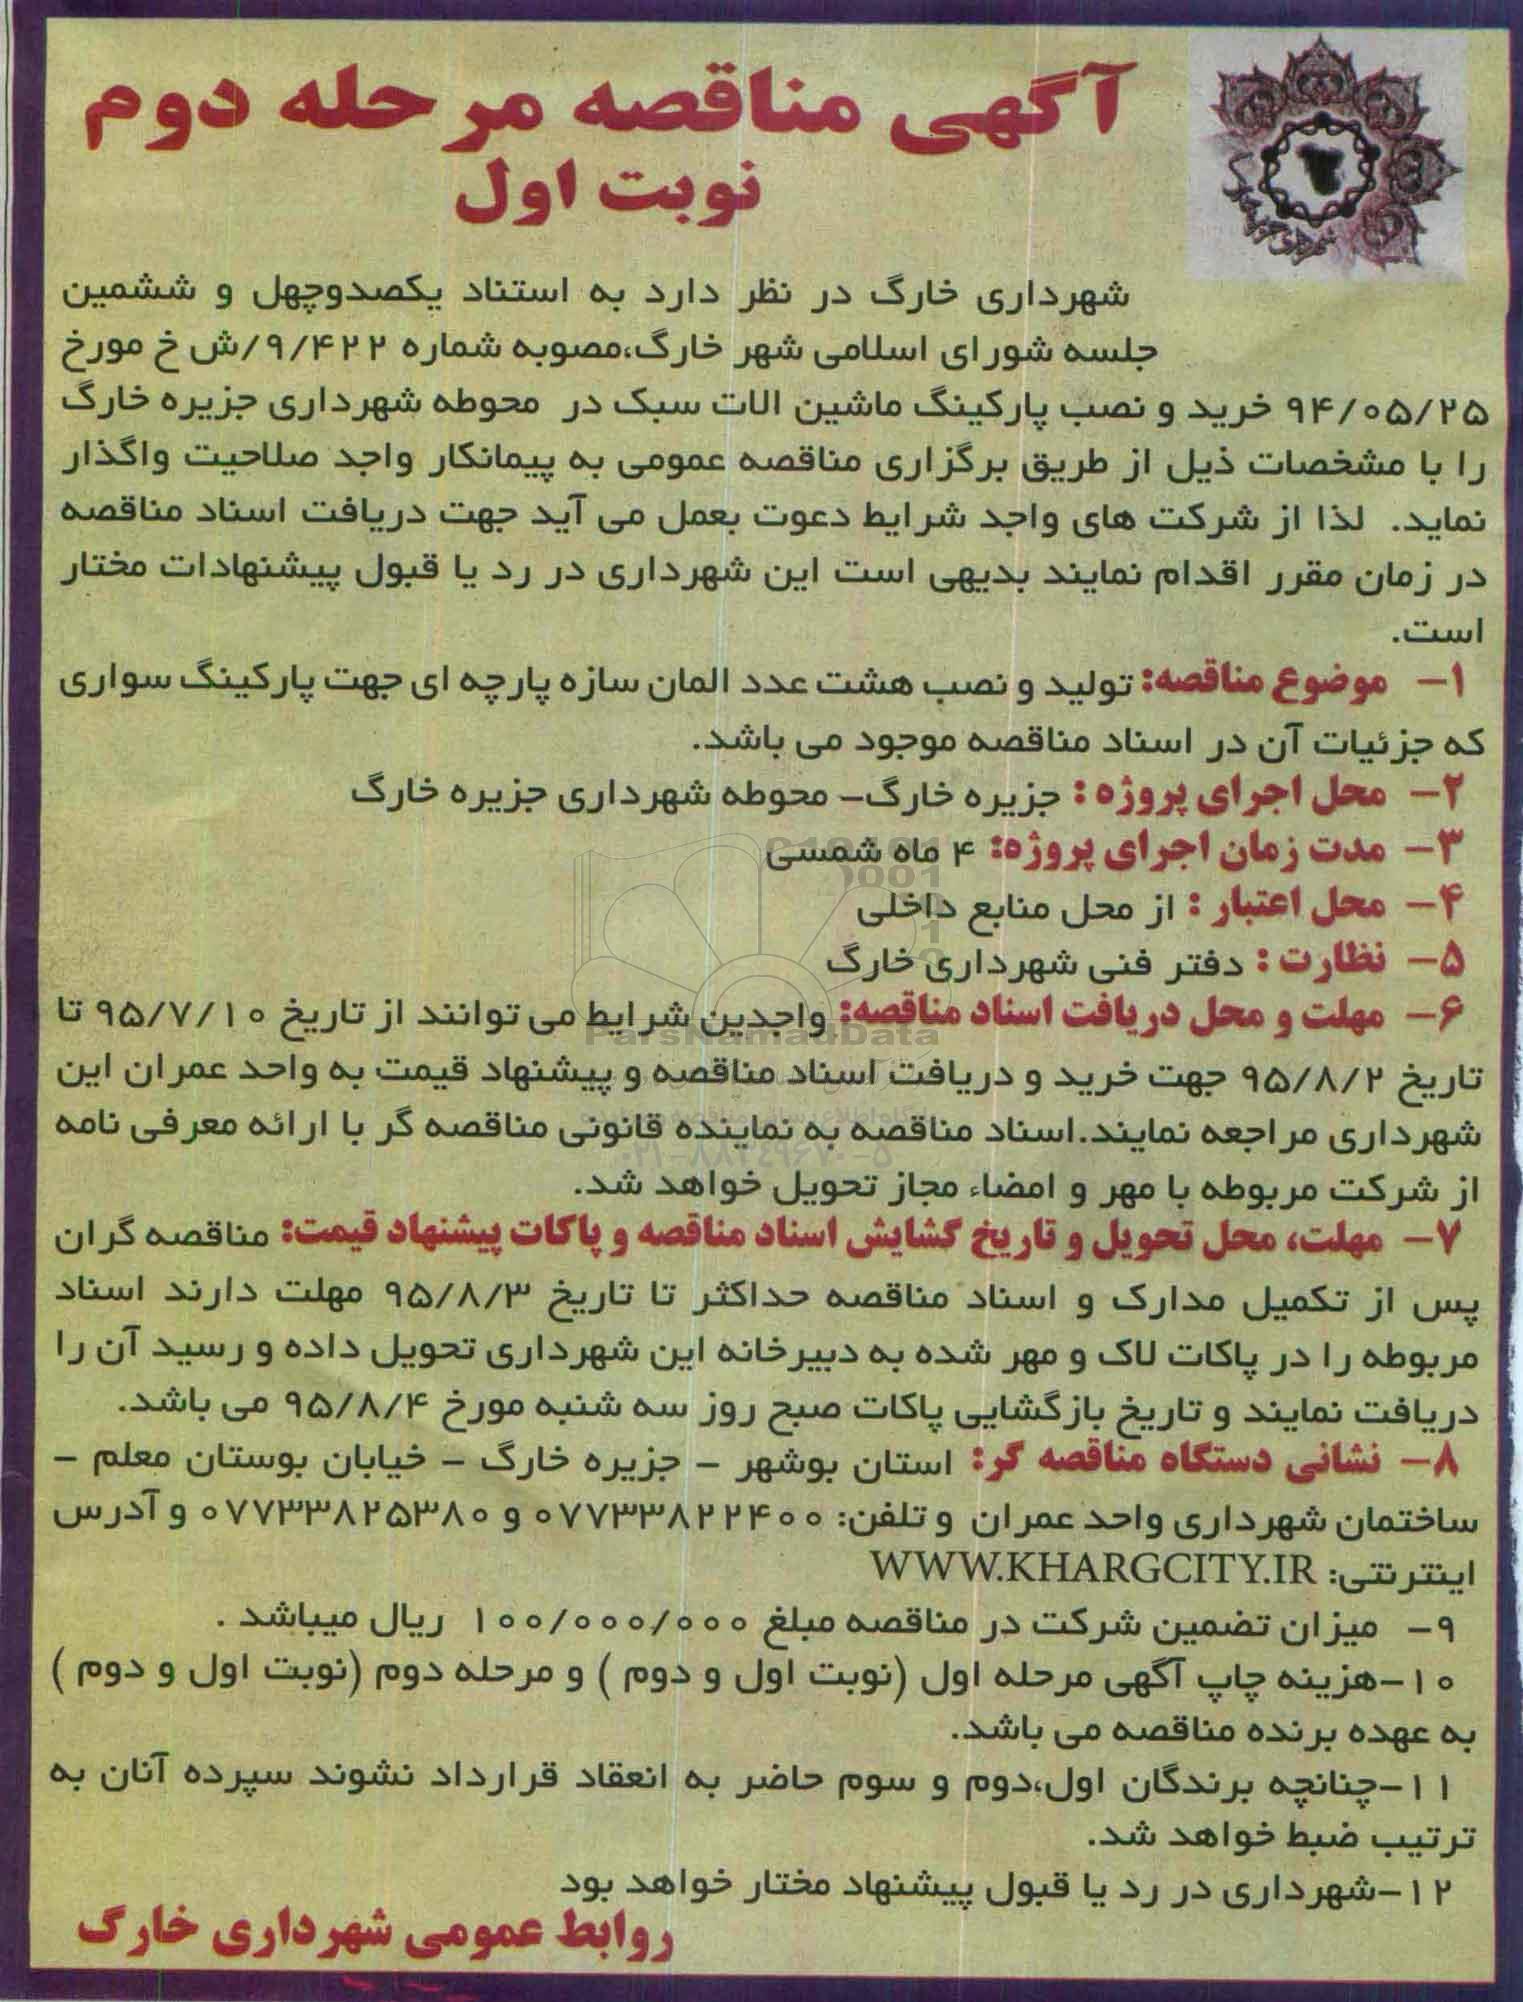 آگهی مناقصه مرحله دوم
نوبت اول
شهرداری خارگ در نظر دارد به استناد یکصدوچهل و ششمین
جلسه شورای اسلامی شهر خارگ،مصوبه شماره ۹/۴۲۲/ش خ مورخ
۹۴/۰۵/۲۵ خرید و نصب پارکینگ ماشین الات سبک در محوطه شهرداری جزیره خارگ
را با مشخصات ذیل از طریق برگزاری مناقصه عمومی به پیمانکار واجد صلاحیت واگذار
نماید. لذا از شرکت های واجد شرایط دعوت بعمل می آید جهت دریافت اسناد مناقصه
در زمان مقرر اقدام نمایند بدیهی است این شهرداری در رد یا قبول پیشنهادات مختار
است.
۱- موضوع مناقصه: تولید و نصب هشت عدد المان سازه پارچه ای جهت پارکینگ سواری
که جزئیات آن در اسناد مناقصه موجود می باشد.
۲- محل اجرای پروژه : جزیره خارگ- محوطه شهرداری جزیره خارگ
۳- مدت زمان اجرای پروژه: ۴ ماه شمسی
۴- محل اعتبار : از محل منابع داخلی
۵- نظارت : دفتر فنی شهرداری خارگ
۶- مهلت و محل دریافت اسناد مناقصه: واجدین شرایط می توانند از تاریخ ۹۵/۷/۱۰ تا
ParsNamadData
تاریخ ۹۵/۸/۲ جهت خرید و دریافت اسناد مناقصه و پیشنهاد قیمت به واحد عمران این
شهرداری مراجعه نمایند.اسناد مناقصه به نماینده قانونی مناقصه گر با ارائه معرفی نامه
۰۲۱-۸۸۳۴۹۶۷۰-۵
از شرکت مربوطه با مهر و امضاء مجاز تحویل خواهد شد.
۷- مهلت، محل تحویل و تاریخ گشایش اسناد مناقصه و پاکات پیشنهاد قیمت: مناقصه گران
پس از تکمیل مدارک و اسناد مناقصه حداکثر تا تاریخ ۹۵/۸/۳ مهلت دارند اسناد
مربوطه را در پاکات لاک و مهر شده به دبیرخانه این شهرداری تحویل داده و رسید آن را
دریافت نمایند و تاریخ بازگشایی پاکات صبح روز سه شنبه مورخ ۹۵/۸/۴ می باشد.
۸- نشانی دستگاه مناقصه گر: استان بوشهر - جزیره خارگ - خیابان بوستان معلم -
ساختمان شهرداری واحد عمران و تلفن: ۰۷۷۳۳۸۲۲۴۰۰ و ۰۷۷۳۳۸۲۵۳۸۰ و آدرس
اینترنتی: WWW.KHARGCITY.IR
۹- میزان تضمین شرکت در مناقصه مبلغ ۱۰۰/۰۰۰/۰۰۰ ریال میباشد .
۱۰-هزینه چاپ آگهی مرحله اول (نوبت اول و دوم ) و مرحله دوم (نوبت اول و دوم )
به عهده برنده مناقصه می باشد.
۱۱-چنانچه برندگان اول،دوم و سوم حاضر به انعقاد قرارداد نشوند سپرده آنان به
ترتیب ضبط خواهد شد.
۱۲-شهرداری در رد یا قبول پیشنهاد مختار خواهد بود
روابط عمومی شهرداری خارگ